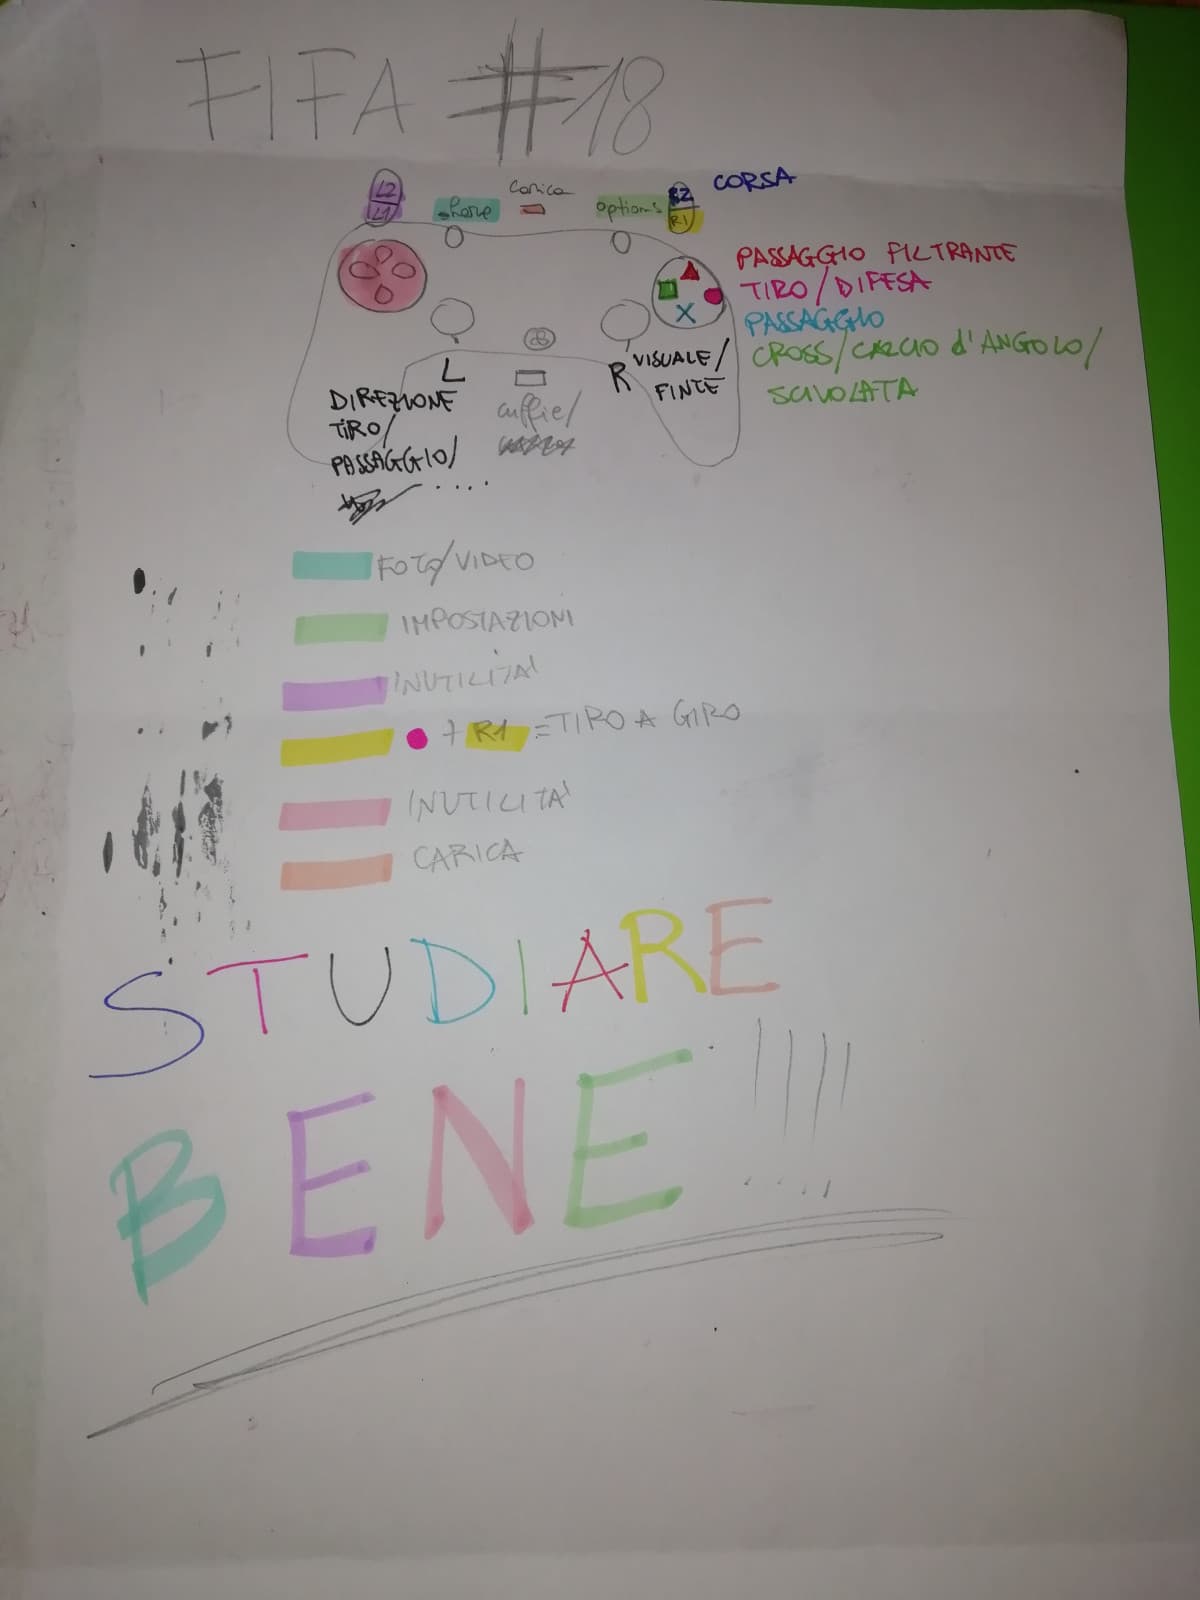 FIFA #18
L2
L1
share
Carica
options
R2
R1
CORSA
PASSAGGIO FILTRANTE
TIRO/DIFESA
PASSAGGIO
CROSS/CALCIO d'ANGOLO/
SCIVOLATA
X
L
DIREZIONE
TIRO/
PASSAGGIO/
....
cuffie/
R VISUALE/
FINTE
FOTO/VIDEO
IMPOSTAZIONI
INUTILITA'
+ R1 = TIRO A GIRO
INUTILITA'
CARICA
STUDIARE
BENE!!!!